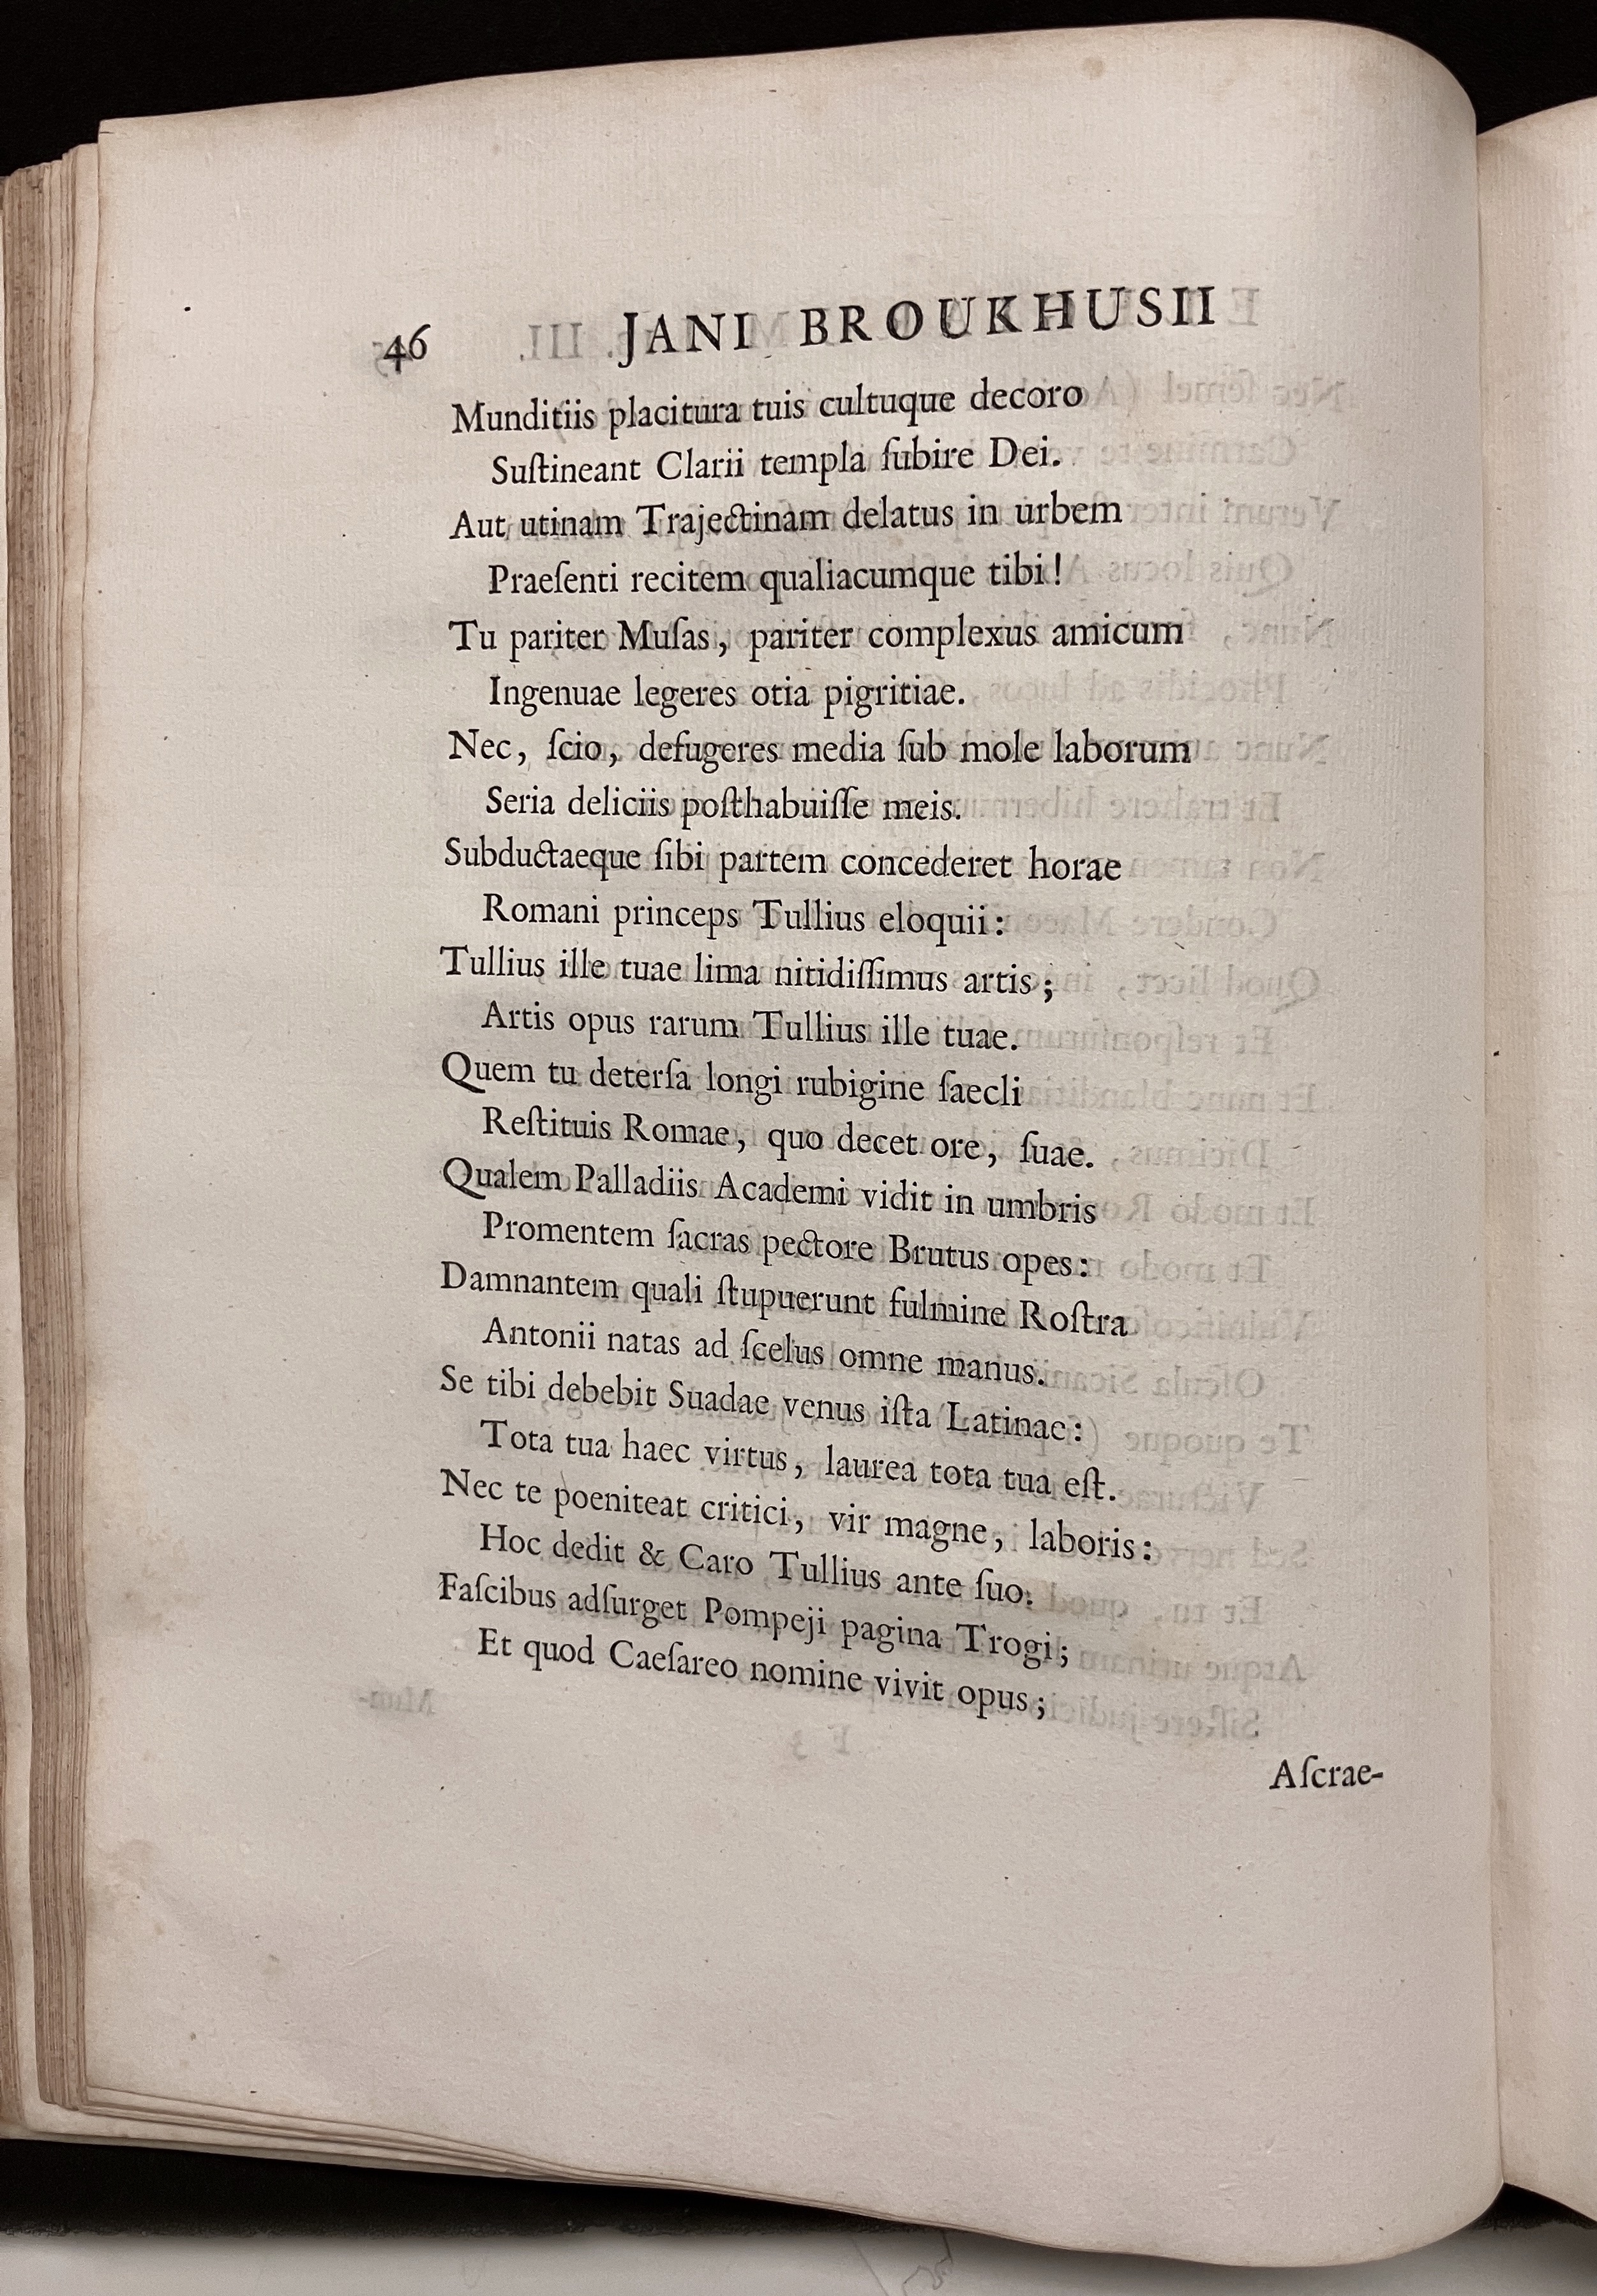 46 JANI BROUKHUSII
Munditiis placitura tuis cultuque decoro
Suſtineant Clarii templa ſubire Dei.
Aut utinam Trajectinam delatus in urbem
Praeſenti recitem qualiacumque tibi!
Tu pariter Muſas, pariter complexus amicum
Ingenuae legeres otia pigritiae.
Nec, ſcio, defugeres media ſub mole laborum
Seria deliciis poſthabuiſſe meis.
Subductaeque ſibi partem concederet horae
Romani princeps Tullius eloquii:
Tullius ille tuae lima nitidiſſimus artis;
Artis opus rarum Tullius ille tuae.
Quem tu deterſa longi rubigine ſaecli
Reſtituis Romae, quo decet ore, ſuae.
Qualem Palladiis Academi vidit in umbris
Promentem ſacras pectore Brutus opes:
Damnantem quali ſtupuerunt fulmine Roſtra
Antonii natas ad ſcelus omne manus.
Se tibi debebit Suadae venus iſta Latinae:
Tota tua haec virtus, laurea tota tua eſt.
Nec te poeniteat critici, vir magne, laboris:
Hoc dedit & Caro Tullius ante ſuo.
Faſcibus adſurget Pompeji pagina Trogi;
Et quod Caeſareo nomine vivit opus;
Aſcrae-